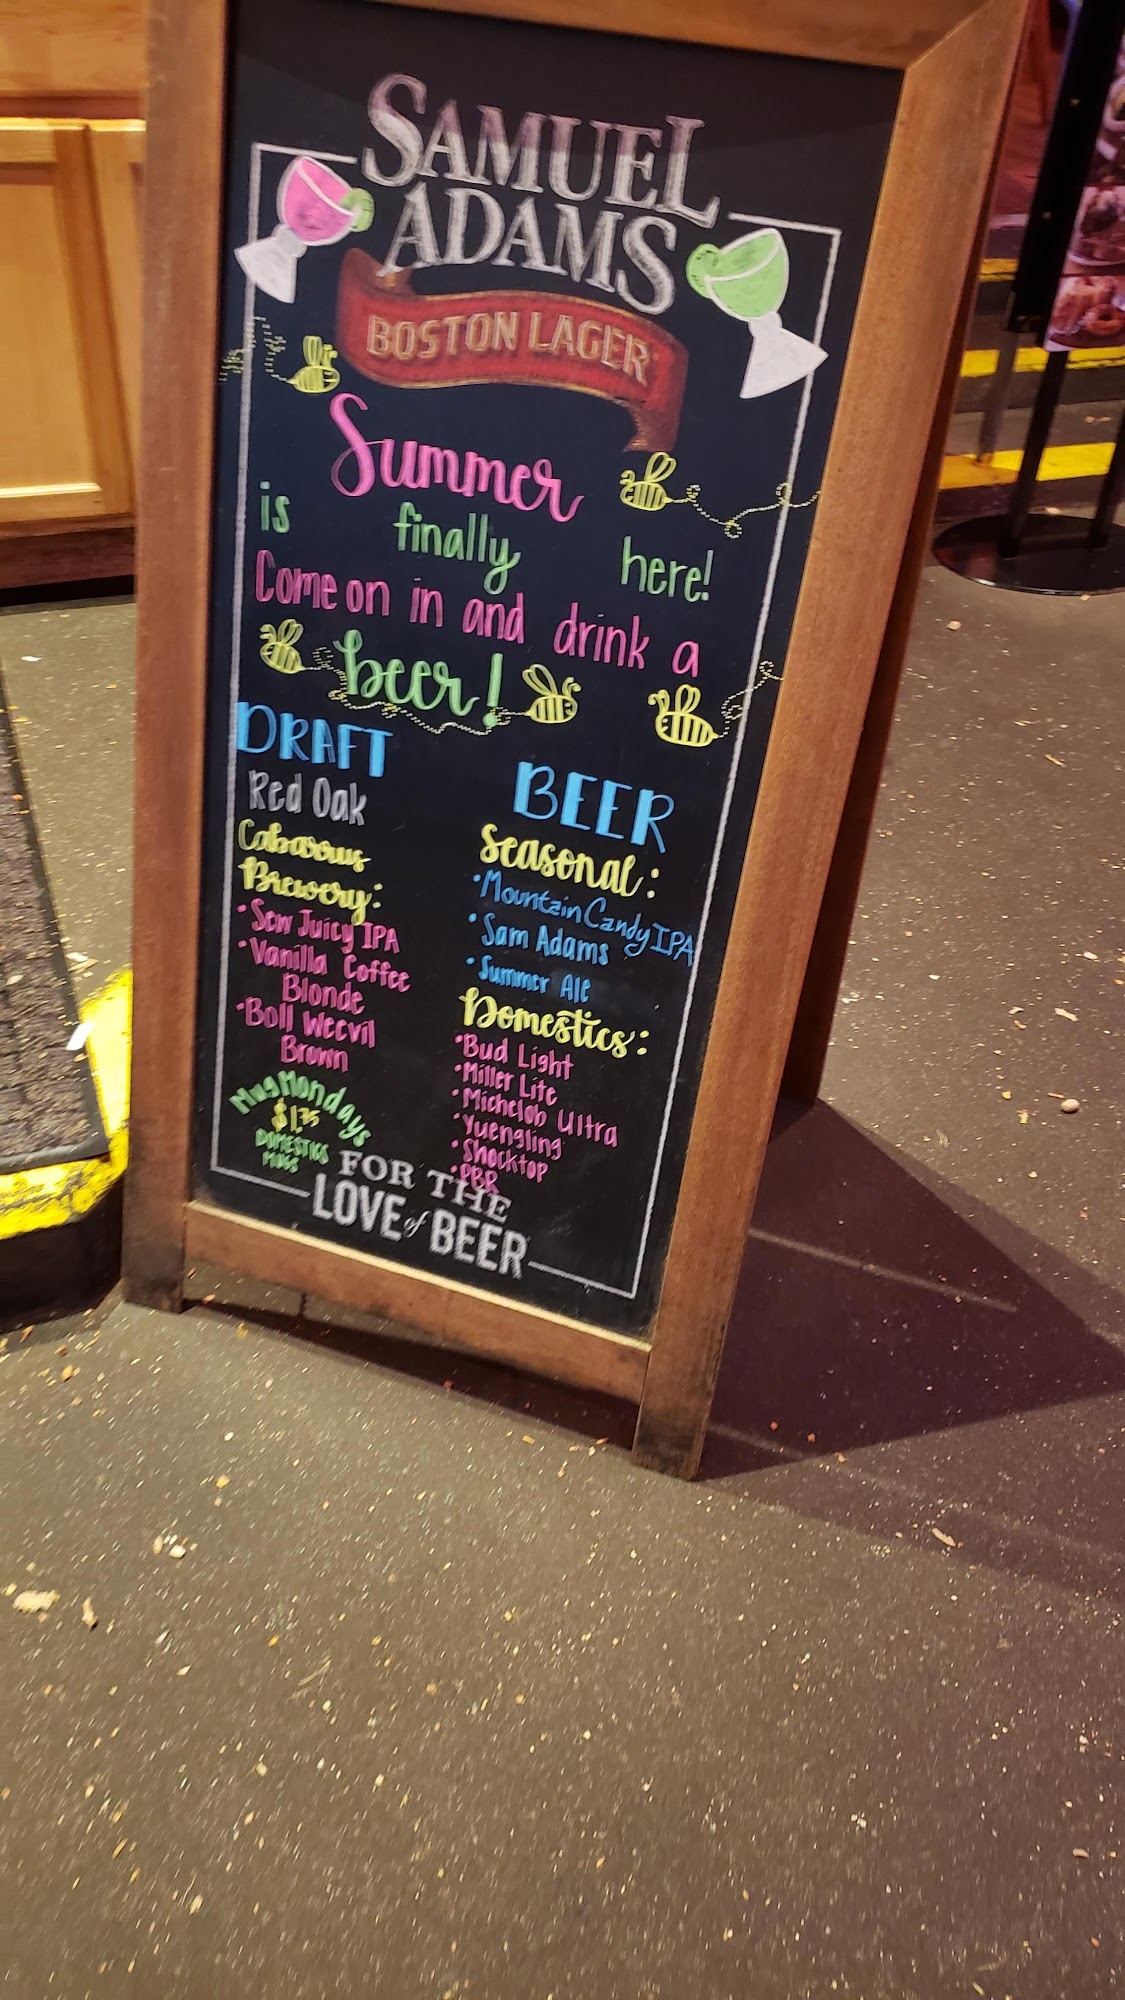 SAMUEL
ADAMS
BOSTON LAGER
Summer
is finally here!
Come on in and drink a
beer!
DRAFT
Red Oak
Cabarrus
Brewery:
• Sew Juicy IPA
• Vanilla Coffee
Blonde
• Boll Weevil
Brown
Mug Mondays
$1.75
DOMESTICS
MUGS
BEER
Seasonal:
• Mountain Candy IPA
• Sam Adams
• Summer Ale
Domestics:
• Bud Light
• Miller Lite
• Michelob Ultra
• Yuengling
• Shocktop
• PBR
FOR THE
LOVE of BEER